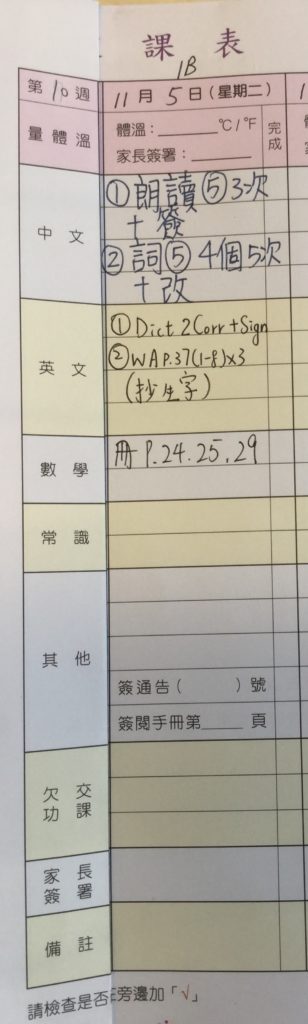 課 表
1B
第 10 週 11 月 5 日 (星期二)
量 體 溫 體溫：______°C/°F 完成
家長簽署：______
中 文 ①朗讀⑤3次
+簽
②詞⑤4個5次
+改
英 文 ①Dict 2 Corr+Sign
②WA P.37(1-8)x3
(抄生字)
數 學 冊 P.24.25.29
常 識
其 他
簽通告( )號
簽閱手冊第______頁
欠 交
功 課
家 長
簽 署
備 註
請檢查是否 旁邊加「√」